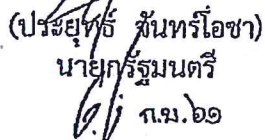 (ประยุทธ์ จันทร์โอชา)
นายกรัฐมนตรี
ก.พ. ๖๑